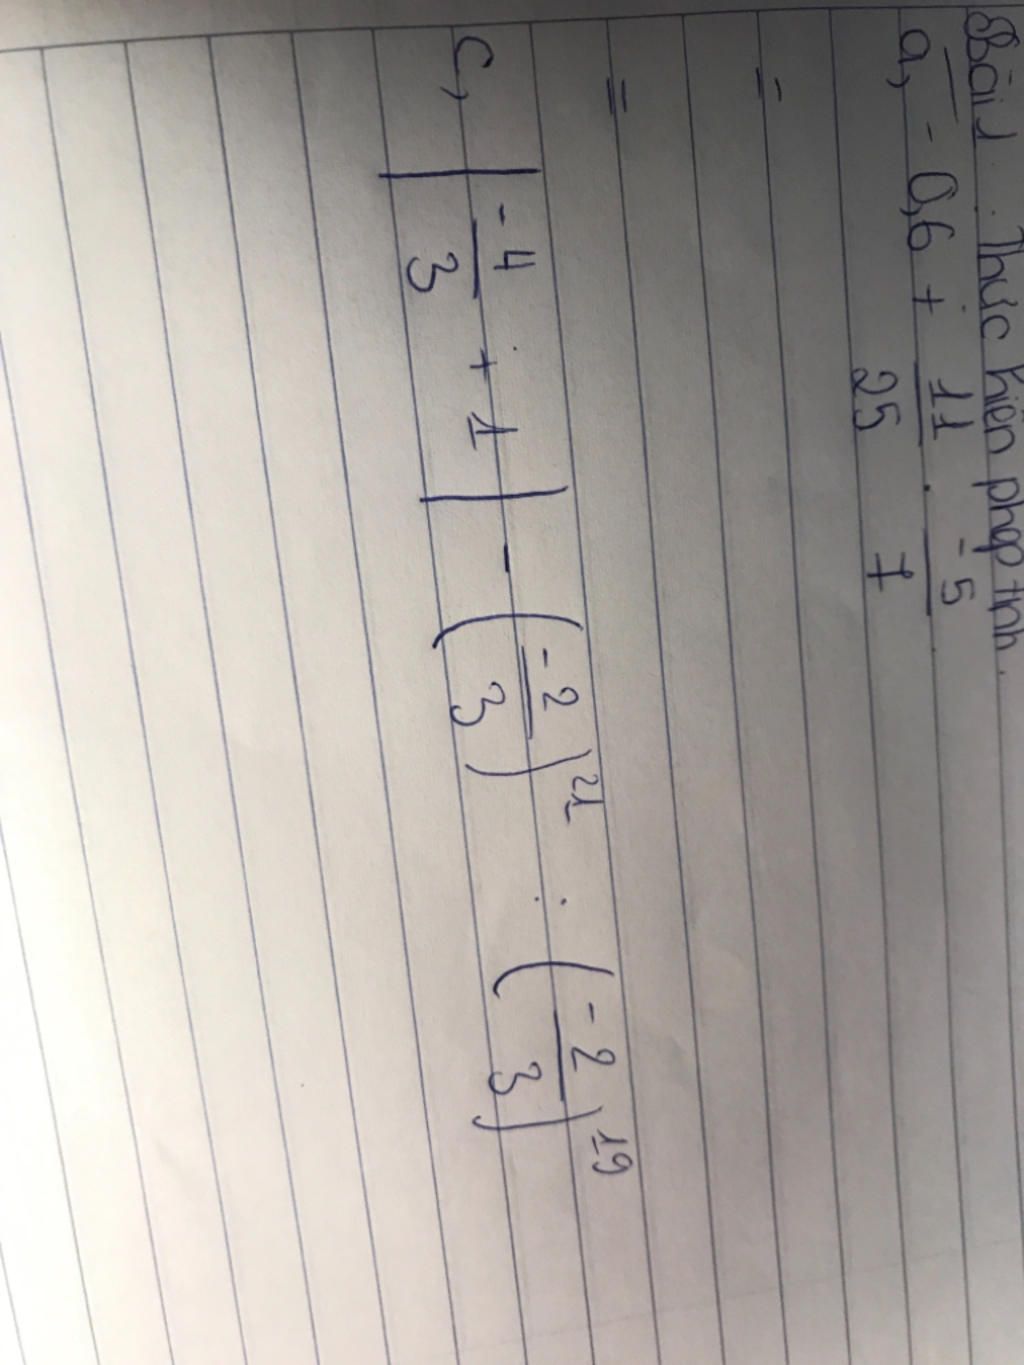 Bài 1. Thức hiên phep tinh.
a, - 0,6 + 11/25 . -5/1
=
=
c, | -4/3 + 1 | - ( -2/3 )^21 : ( -2/3 )^19